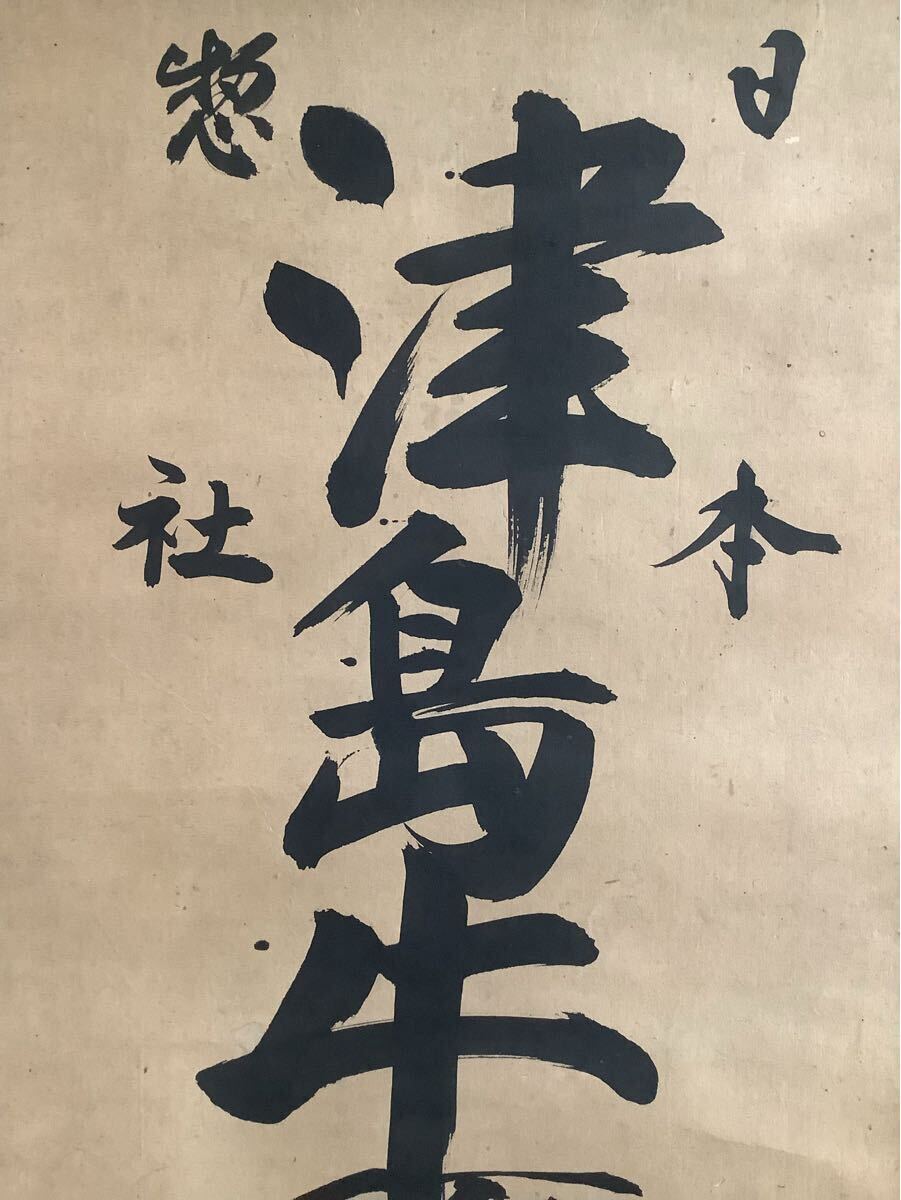 日本
津島牛
惣社